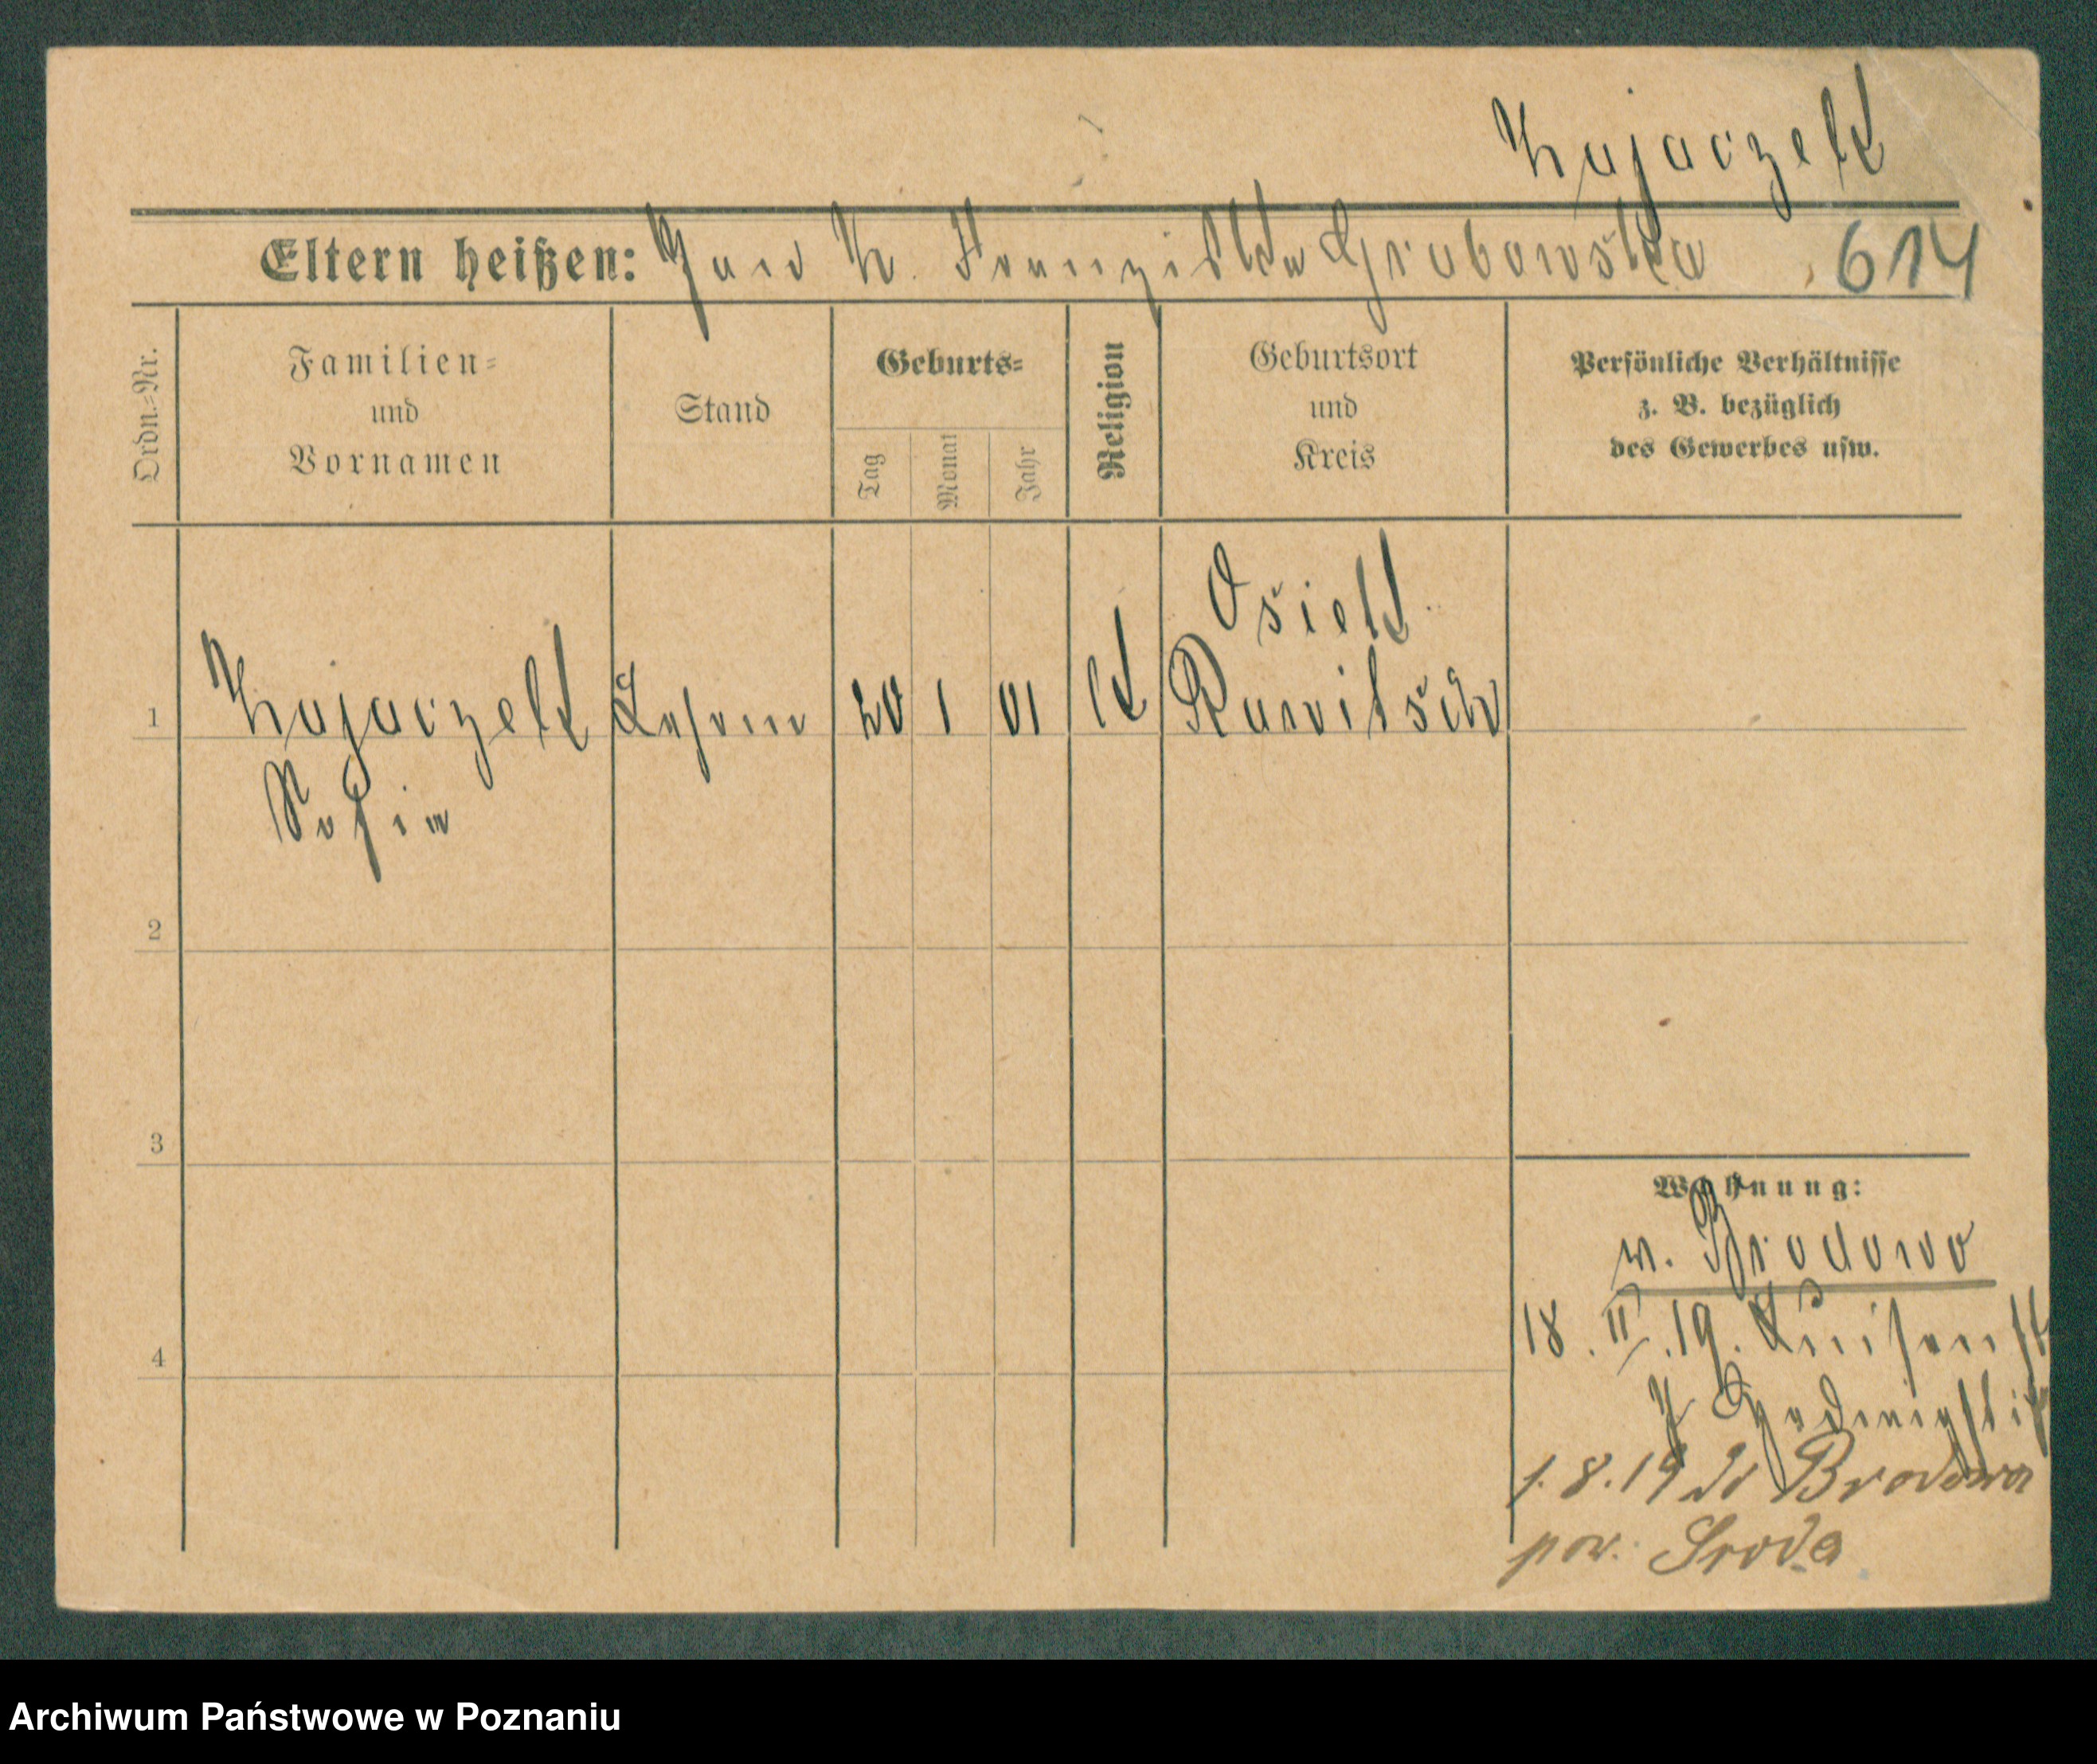 Kajaczek
Eltern heißen: Jan K. Franziska Grabowska 614
Ordn.=Nr.
Familien=
und
Vornamen
Stand
Geburts=
Tag
Monat
Jahr
Religion
Geburtsort
und
Kreis
Persönliche Verhältnisse
z. B. bezüglich
des Gewerbes usw.
Osiek
1 Kajaczek 20 1 01 k Rawitsch
Sofia
2
3
4
Wohnung:
v. Brodowo
18. II. 19. Luisenst
1.8.19 do Brodowa
pow. Sroda
Archiwum Państwowe w Poznaniu